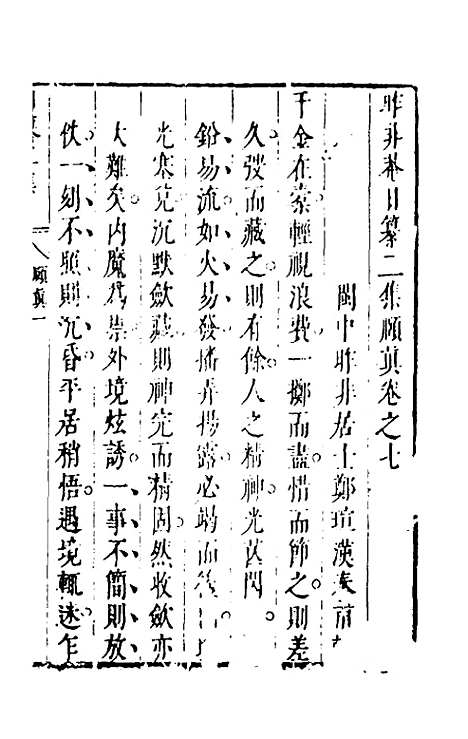 昨非菴日纂二集頤真卷之七
閩中昨非居士鄭瑄漢奉甫
千金在橐輕視浪費一擲而盡惜而節之則差
久發而藏之則有餘人之精神光芒閃
鉛易流如火易發播弄揚露必竭而後
光塞兌沉默斂藏則神完而精固然收斂亦
大難矣內魔為祟外境炫誘一事不簡則放
佚一刻不照則沉昏平居稍悟遇境輒迷乍
頤真一